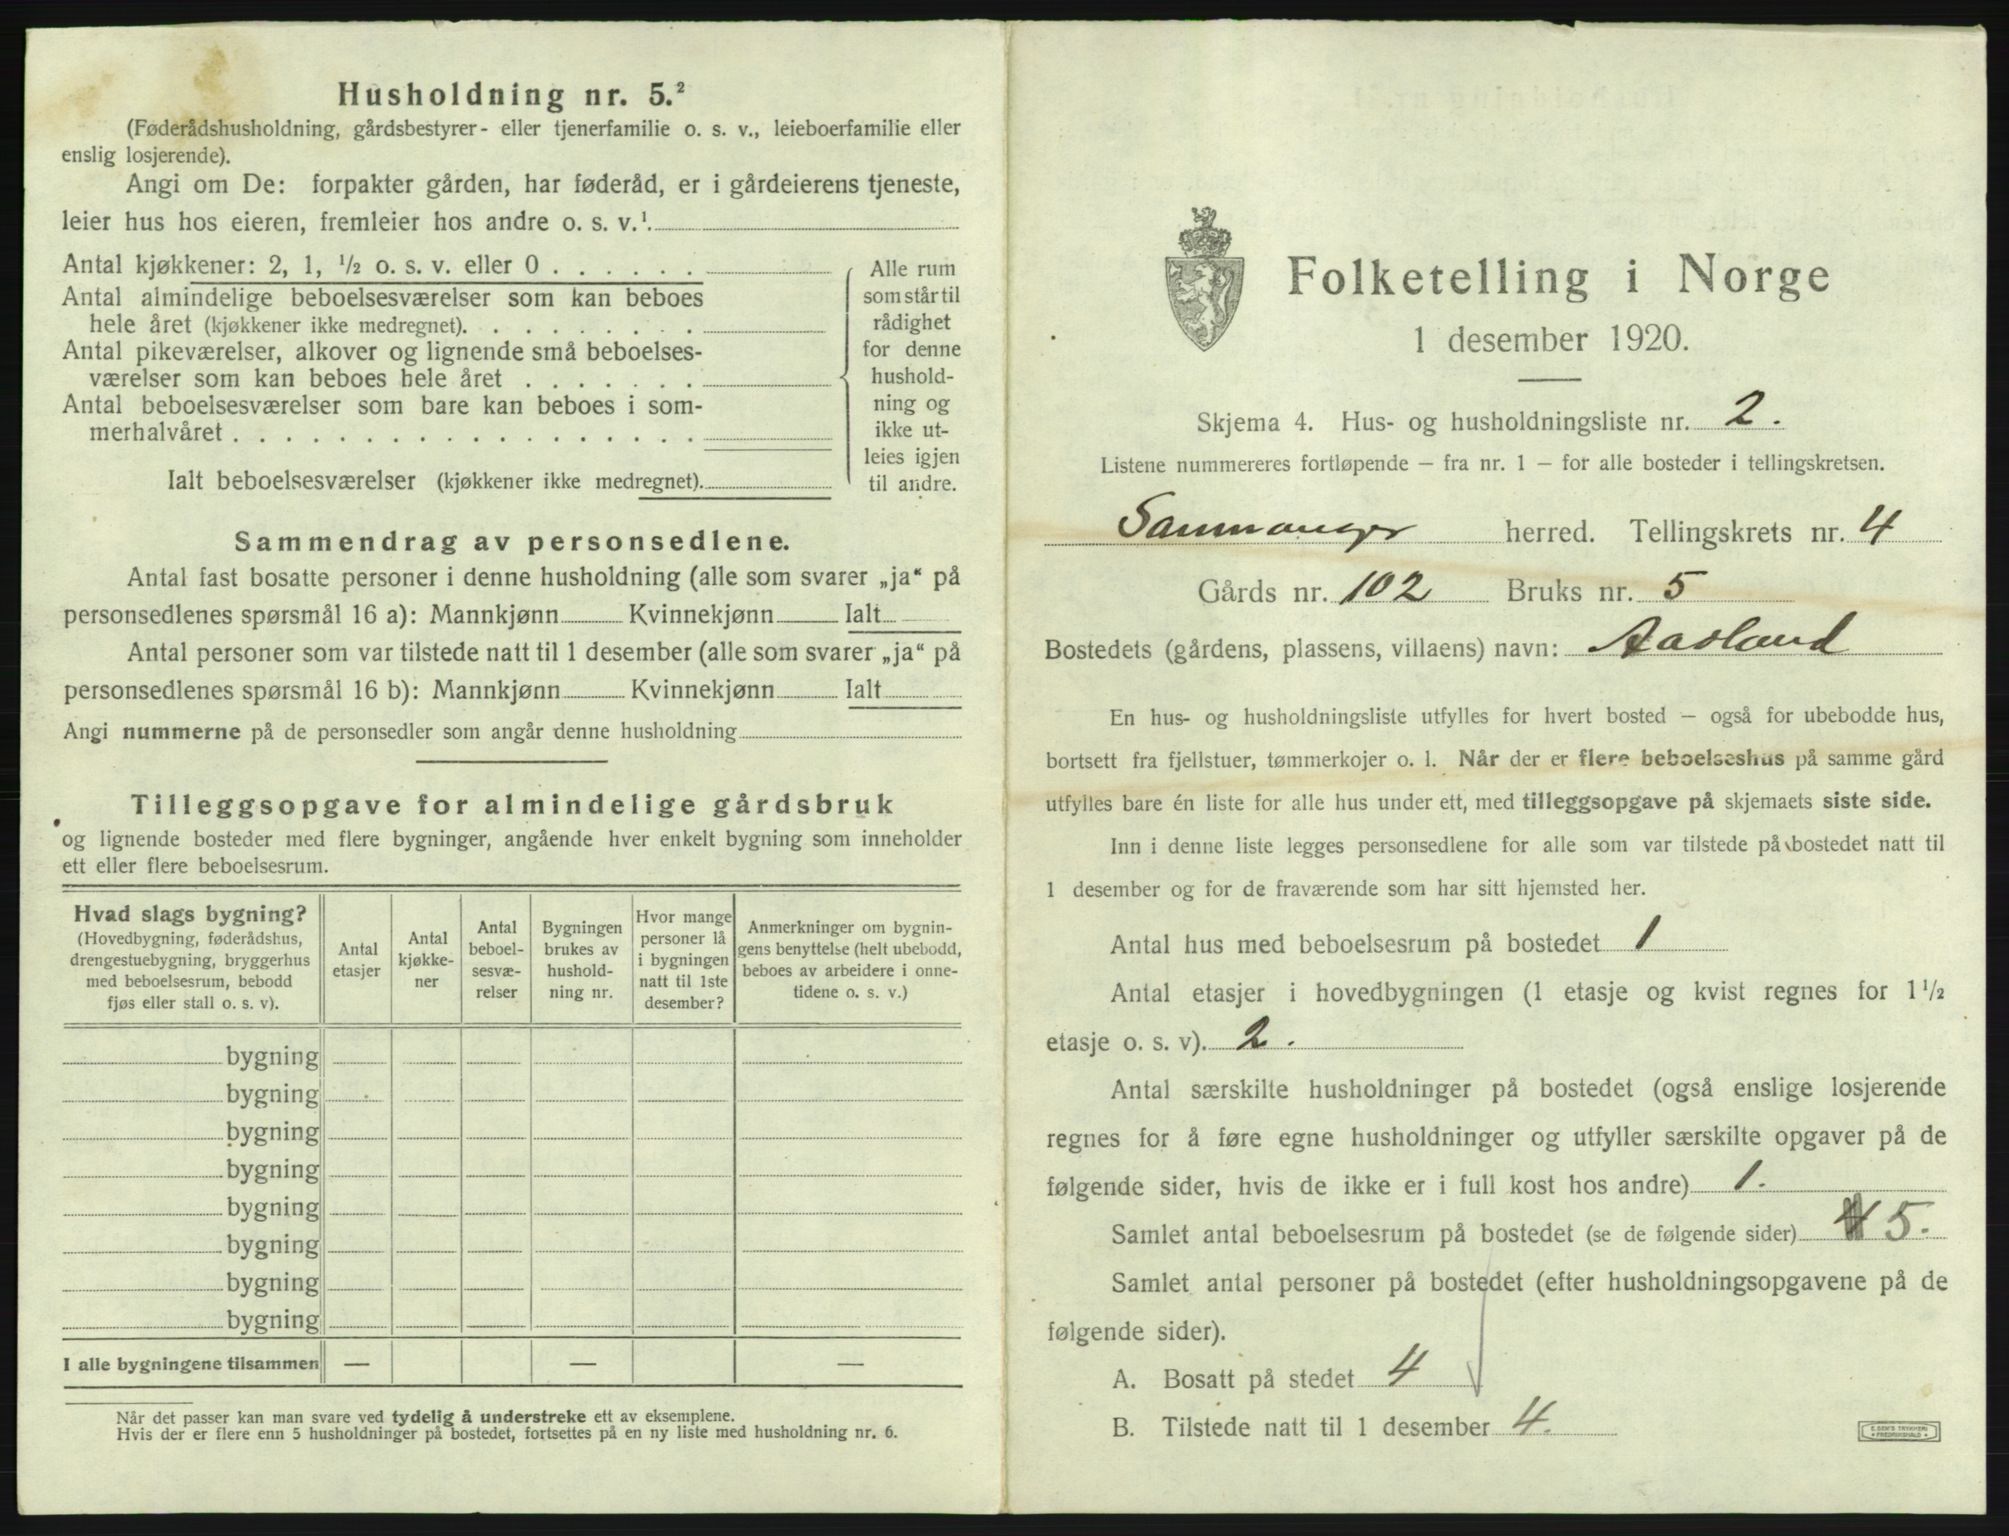 Husholdning nr. 5.²
(Føderådshusholdning, gårdsbestyrer- eller tjenerfamilie o. s. v., leieboerfamilie eller
enslig losjerende).
Angi om De: forpakter gården, har føderåd, er i gårdeierens tjeneste,
leier hus hos eieren, fremleier hos andre o. s. v.¹
Antal kjøkkener: 2, 1, ½ o. s. v. eller 0 . . . . . .
Antal almindelige beboelsesværelser som kan beboes
hele året (kjøkkener ikke medregnet). . . . . . . . .
Antal pikeværelser, alkover og lignende små beboelses-
værelser som kan beboes hele året . . . . . . .
Antal beboelsesværelser som bare kan beboes i som-
merhalvåret . . . . . . . . . . . . . . . . . .
Ialt beboelsesværelser (kjøkkener ikke medregnet).
Alle rum
som står til
rådighet
for denne
hushold-
ning og
ikke ut-
leies igjen
til andre.
Sammendrag av personsedlene.
Antal fast bosatte personer i denne husholdning (alle som svarer „ja“ på
personsedlenes spørsmål 16 a): Mannkjønn Kvinnekjønn Ialt
Antal personer som var tilstede natt til 1 desember (alle som svarer „ja“ på
personsedlenes spørsmål 16 b): Mannkjønn Kvinnekjønn Ialt
Angi nummerne på de personsedler som angår denne husholdning
Tilleggsopgave for almindelige gårdsbruk
og lignende bosteder med flere bygninger, angående hver enkelt bygning som inneholder
ett eller flere beboelsesrum.
Hvad slags bygning?
(Hovedbygning, føderådshus,
drengestuebygning, bryggerhus
med beboelsesrum, bebodd
fjøs eller stall o. s. v).
Antal
etasjer
Antal
kjøkke-
ner
Antal
beboel-
sesvæ-
relser
Bygningen
brukes av
hushold-
ning nr.
Hvor mange
personer lå
i bygningen
natt til 1ste
desember?
Anmerkninger om bygnin-
gens benyttelse (helt ubebodd,
beboes av arbeidere i onne-
tidene o. s. v.)
bygning
bygning
bygning
bygning
bygning
bygning
bygning
bygning
I alle bygningene tilsammen — — —
Når det passer kan man svare ved tydelig å understreke ett av eksemplene.
Hvis der er flere enn 5 husholdninger på bostedet, fortsettes på en ny liste med husholdning nr. 6.
Folketelling i Norge
1 desember 1920.
Skjema 4. Hus- og husholdningsliste nr. 2.
Listene nummereres fortløpende — fra nr. 1 — for alle bosteder i tellingskretsen.
Sammanger herred. Tellingskrets nr. 4
Gårds nr. 102 Bruks nr. 5
Bostedets (gårdens, plassens, villaens) navn: Aasland
En hus- og husholdningsliste utfylles for hvert bosted — også for ubebodde hus,
bortsett fra fjellstuer, tømmerkojer o. l. Når der er flere beboelseshus på samme gård
utfylles bare én liste for alle hus under ett, med tilleggsopgave på skjemaets siste side.
Inn i denne liste legges personsedlene for alle som var tilstede på bostedet natt til
1 desember og for de fraværende som har sitt hjemsted her.
Antal hus med beboelsesrum på bostedet 1
Antal etasjer i hovedbygningen (1 etasje og kvist regnes for 1½
etasje o. s. v). 2.
Antal særskilte husholdninger på bostedet (også enslige losjerende
regnes for å føre egne husholdninger og utfyller særskilte opgaver på de
følgende sider, hvis de ikke er i full kost hos andre) 1.
Samlet antal beboelsesrum på bostedet (se de følgende sider) 5.
Samlet antal personer på bostedet (efter husholdningsopgavene på de
følgende sider).
A. Bosatt på stedet 4
B. Tilstede natt til 1 desember 4.